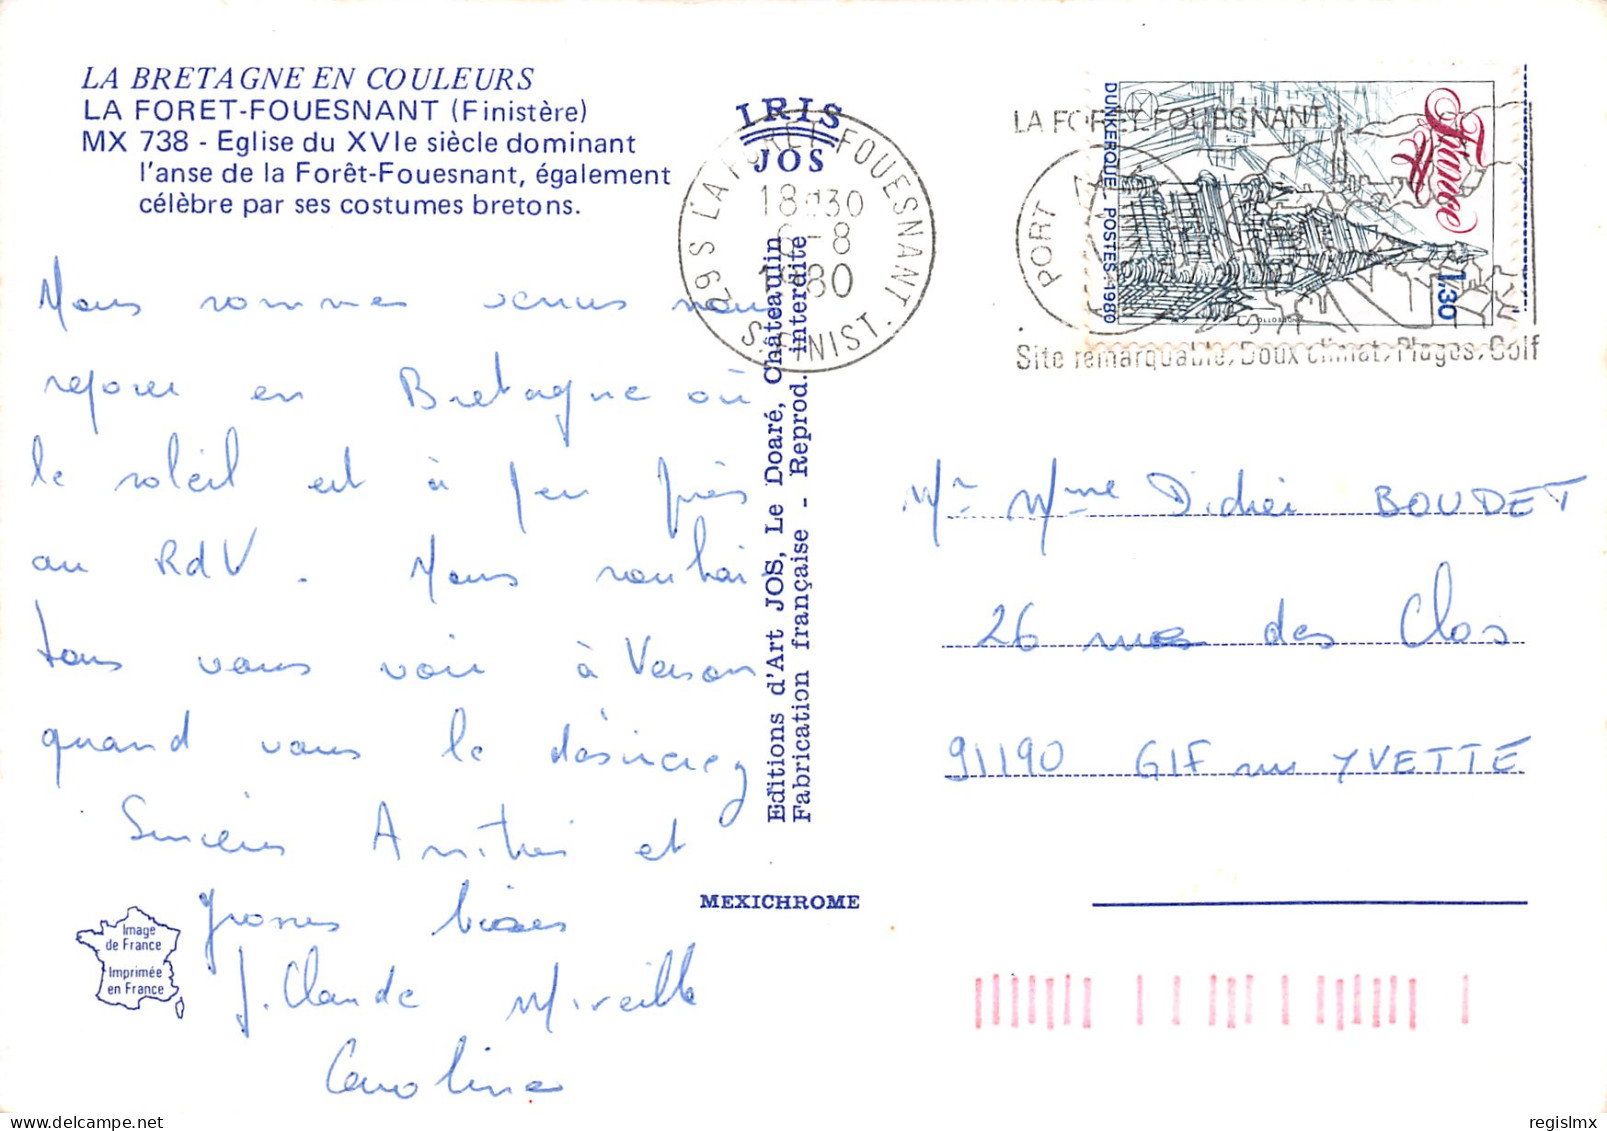 LA BRETAGNE EN COULEURS
LA FORET-FOUESNANT (Finistère)
MX 738 - Eglise du XVIe siècle dominant
l'anse de la Forêt-Fouesnant, également
célèbre par ses costumes bretons.
Nous sommes venus nous
reposer en Bretagne où
le soleil est à peu près
au RdV. Nous souhai
tons vous voir à Verson
quand vous le désirerez
Sincères Amitiés et
grosses bises
J. Claude Mireille
Caroline
Image
de France
Imprimée
en France
IRIS
JOS
Editions d'Art JOS, Le Doaré, Châteaulin
Fabrication française - Reprod. interdite
MEXICHROME
29 S LA FORET FOUESNANT
18 H30
-8
1980
S. FINIST.
LA FORET-FOUESNANT
PORT
Site remarquable, Doux climat, Plages, Golf
DUNKERQUE POSTES 1980
France
1,30
Mr Mme Didier BOUDET
26 rue des Clos
91190 GIF sur YVETTE
regislmx